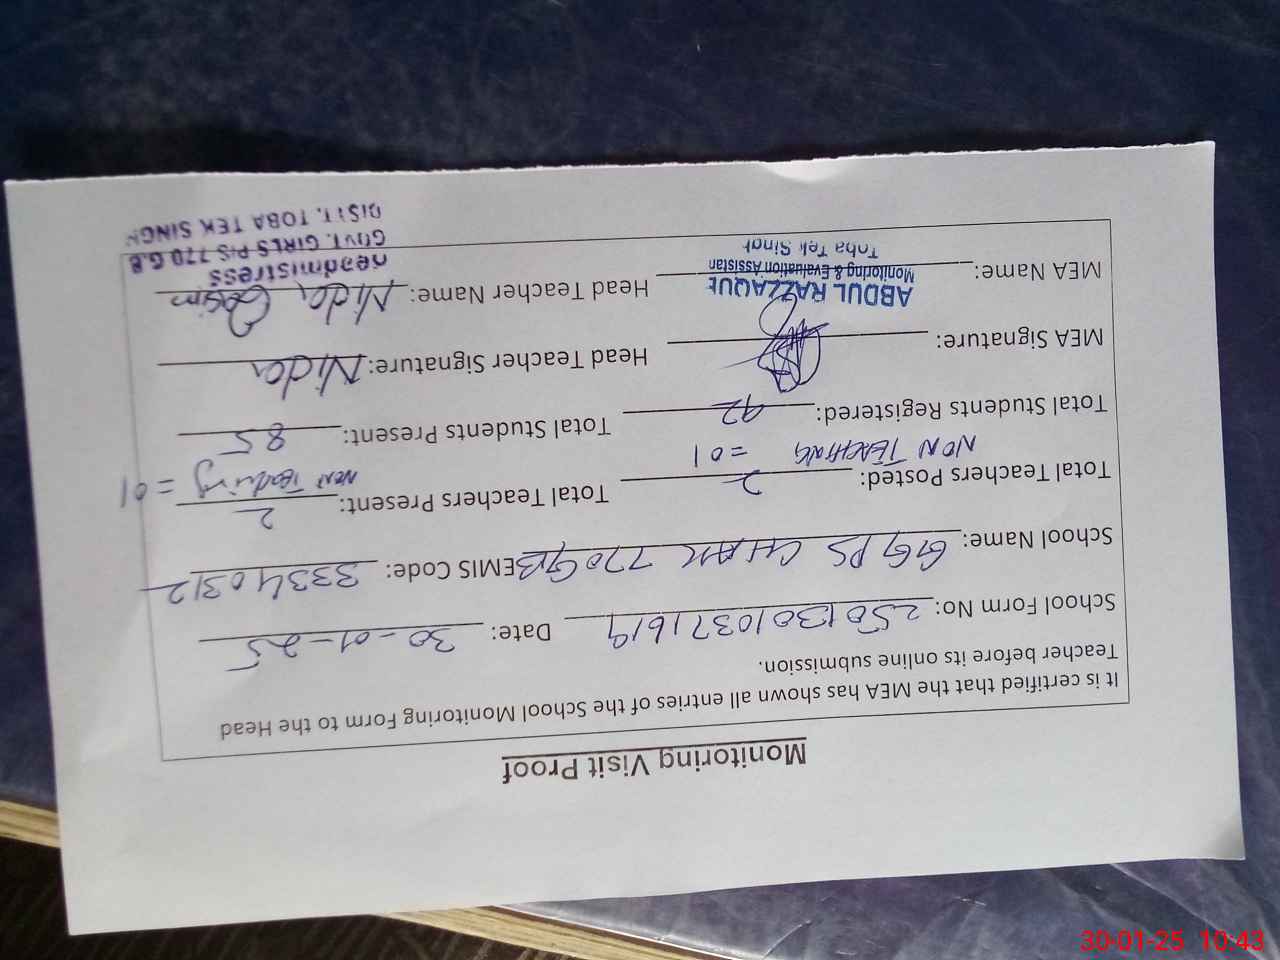 Monitoring Visit Proof
It is certified that the MEA has shown all entries of the School Monitoring Form to the Head
Teacher before its online submission.
School Form No: 25013010371619 Date: 30-01-25
School Name: GGPS CHAK 770 GB EMIS Code: 33340312
Total Teachers Posted: 2 Total Teachers Present: 2
NON TEACHING = 01 NON Teaching = 01
Total Students Registered: 92 Total Students Present: 85
MEA Signature: Head Teacher Signature: Nida
MEA Name: Head Teacher Name: Nida Qasim
ABDUL RAZZAQUE
Monitoring & Evaluation Assistan
Toba Tek Singh
Headmistress
GOVT. GIRLS P/S 770 G.B
DISTT. TOBA TEK SINGH
30-01-25 10:43